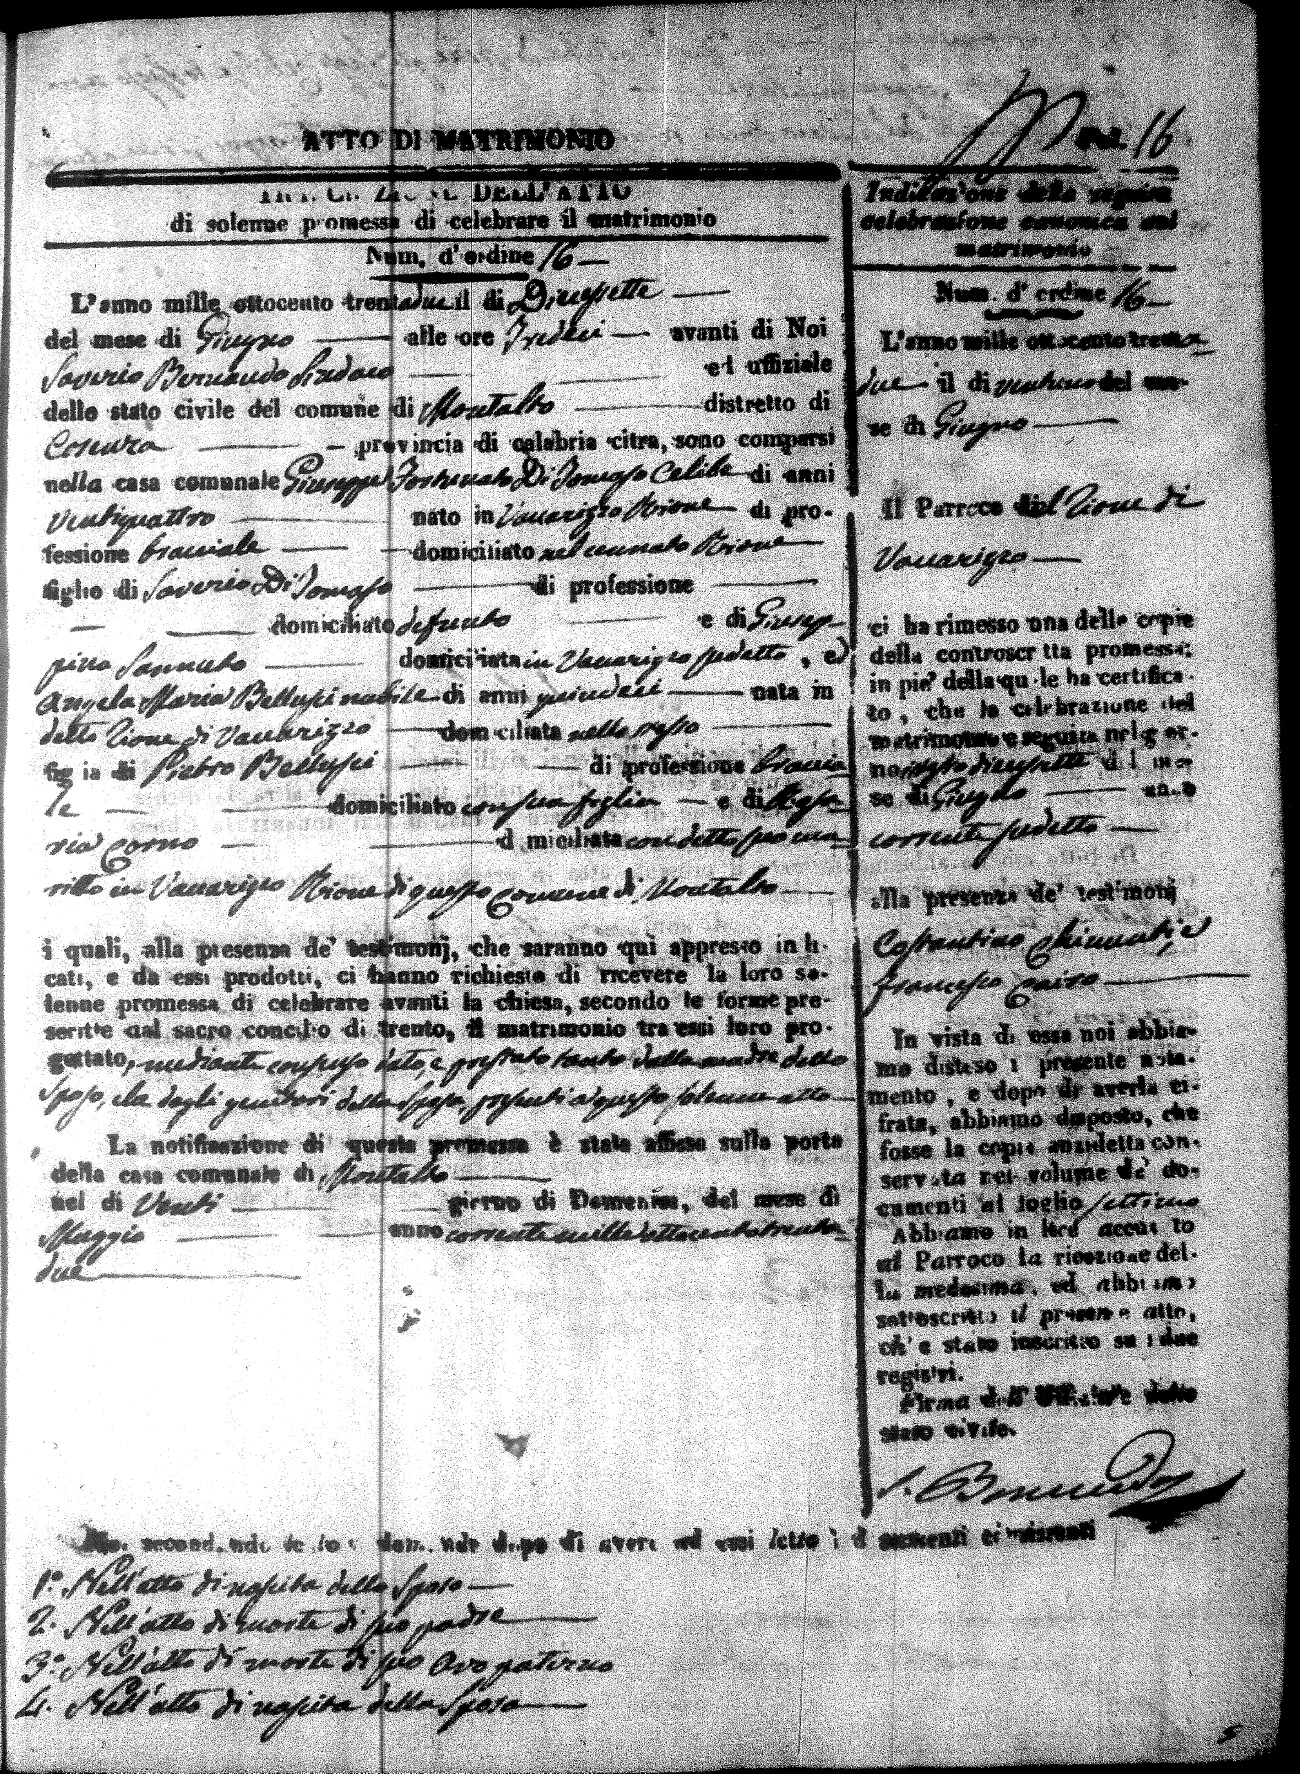 ATTO DI MATRIMONIO
Num. 16
DELL'ATTO
di solenne promessa di celebrare il matrimonio
Num. d'ordine 16
L'anno mille ottocento trentadue il di Diecissette
del mese di Giugno alle ore Tredeci avanti di Noi
Saverio Bernaudo Sindaco ed uffiziale
dello stato civile del comune di Montalto distretto di
Cosenza provincia di calabria citra, sono comparsi
nella casa comunale Giuseppe Fortunato Di Tomaso Celibe di anni
Ventiquattro nato in Vaccarizzo Rione di pro-
fessione bracciale domiciliato nel cennato Rione
figlio di Saverio Di Tomaso di professione
domiciliato defunto e di Giusep-
pina Sannuto domiciliata in Vaccarizzo sudetto, ed
Angela Maria Bellusci nubile di anni quindeci nata in
detto Rione di Vaccarizzo domiciliata nello stesso
figlia di Pietro Bellusci di professione braccia-
le domiciliato con sua figlia e di
ria domiciliata con detto suo ma-
rito in Vaccarizzo Rione di questo Comune di Montalto
i quali, alla presenza de' testimonj, che saranno qui appresso indi-
cati, e da essi prodotti, ci hanno richiesto di ricevere la loro so-
lenne promessa di celebrare avanti la chiesa, secondo le forme pre-
scritte dal sacro concilio di trento, il matrimonio tra essi loro pro-
gettato, mediante consenso dato, e prestato tanto dalla madre dello
Sposo, che dagli genitori della Sposa, presenti a questo solenne atto
La notificazione di questa promessa è stata affissa sulla porta
della casa comunale di Montalto
nel di Venti giorno di Domenica, del mese di
Maggio anno corrente mille ottocento trenta-
due
Noi secondando la loro domanda dopo di avere ad essi letto i documenti consistenti
1.º Nell'atto di nascita dello Sposo
2.º Nell'atto di morte di suo padre
3.º Nell'atto di morte di suo Avo paterno
4. Nell'atto di nascita della Sposa
Indicazione della seguita
celebrazione canonica del
matrimonio
Num. d'ordine 16
L'anno mille ottocento trenta-
due il di ventuno del me-
se di Giugno
Il Parroco del Rione di
Vaccarizzo
ci ha rimesso una delle copie
della controscritta promessa;
in piè della quale ha certifica-
to, che la celebrazione del
matrimonio è seguita nel gior-
no diecissette del me-
se di Giugno anno
corrente sudetto
alla presenza de' testimonj
Costantino Chimenti, e
Francesco
In vista di essa noi abbia-
mo disteso il presente nota-
mento, e dopo di averla ci-
frata, abbiamo disposto, che
fosse la copia anzidetta con-
servata nel volume de' do-
cumenti al foglio settimo
Abbiamo in oltre accusato
al Parroco la ricezione del-
la medesima, ed abbiamo
sottoscritto il presente atto,
ch'è stato inscritto su i due
registri.
Firma dell' Uffiziale dello
stato civile.
S. Bernaudo